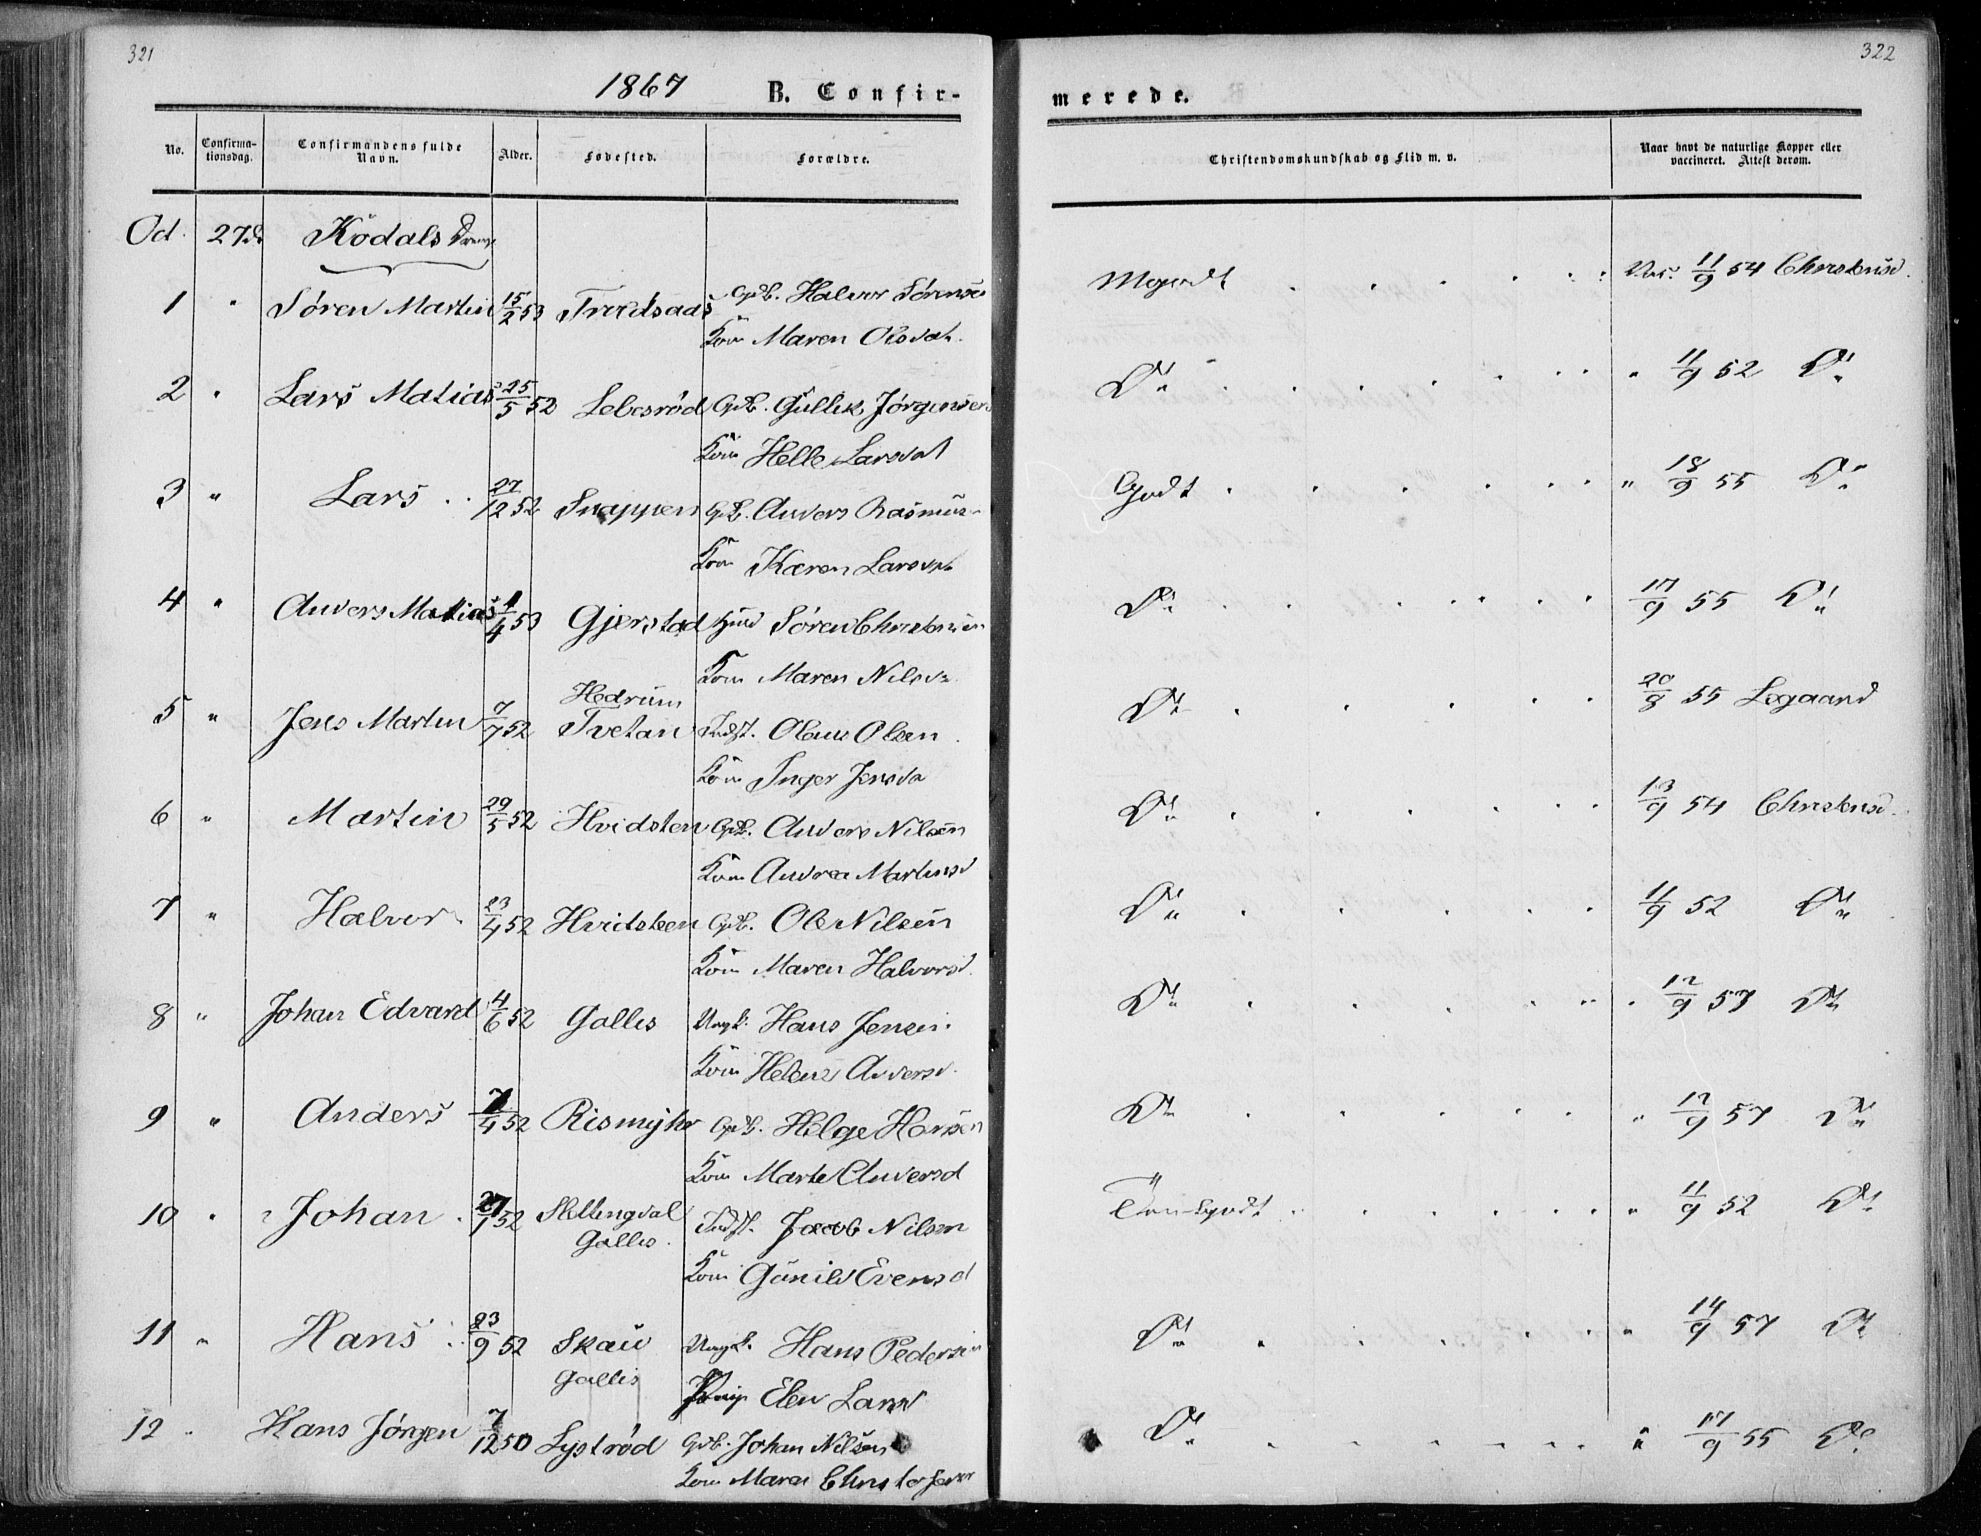 321
1867 B. Confir-
No. Confirma-tionsdag. Confirmandens fulde Navn. Alder. Fødested. Forældre.
Od. 27de Kodals Drenge
1 " Søren Martin 15/2 53 Gdb. Halvor Sørensen
Kone Maren Olsdat.
2 " Lars Matias 25/5 52 Lebesrød Gdb. Gullik Jørgensen
Kone Helle Larsdat
3 " Lars 27/12 52 Snappen Gdb. Anders Rasmus-
Kone Karen Larsdt
4 " Anders Matias 1/4 53 Gjerstad Søren Christensen
Kone Maren Nilsd
5 " Jens Martin 7/7 52 Hedrum Tvetan Indst. Olaus Olsen
Kone Inger Jensda
6 " Martin 29/5 52 Hvidsten Gdb. Anders Nilsen
Kone Andrea Martinsd
7 " Halvor 23/4 52 Hvitsteen Gdb. Ole Nilsen
Kone Maren Halvorsd.
8 " Johan Edvard 4/6 52 Gallis Ungk. Hans Jensen
Kone Helene Andersd.
9 " Anders 7/4 52 Rismyhr Gdb. Helge Hansen
Kone Marte Andersd
10 " Johan 27/1 52 Skellingdal Gallis. Indst. Jacob Nilsen
Kone Gunild Evensd
11 " Hans 23/9 52 Skau Gallis Ungk. Hans Pedersen
Pige Elen Larsd
12 " Hans Jørgen 7/12 50 Lystrød Gdb. Johan Nilsen
Kone Maren Christofersd
322
merede.
Christendomskundskab og Flid m. v. Naar havt de naturlige Kopper eller vaccineret. Attest derom.
Mgodt Vac. 11/9 54 Christensd.
Do " 11/9 52 Do
Godt " 18/9 55 Do
Do 17/9 55 Do
Do 20/8 55 Løgaard
Do 13/9 54 Christensd.
Do 11/9 52 Do
Do " 12/9 57 Do
Do " 12/9 57 Do
Tem. godt " 11/9 52 Do
Do " 14/9 57 Do
Do " 17/9 55 Do